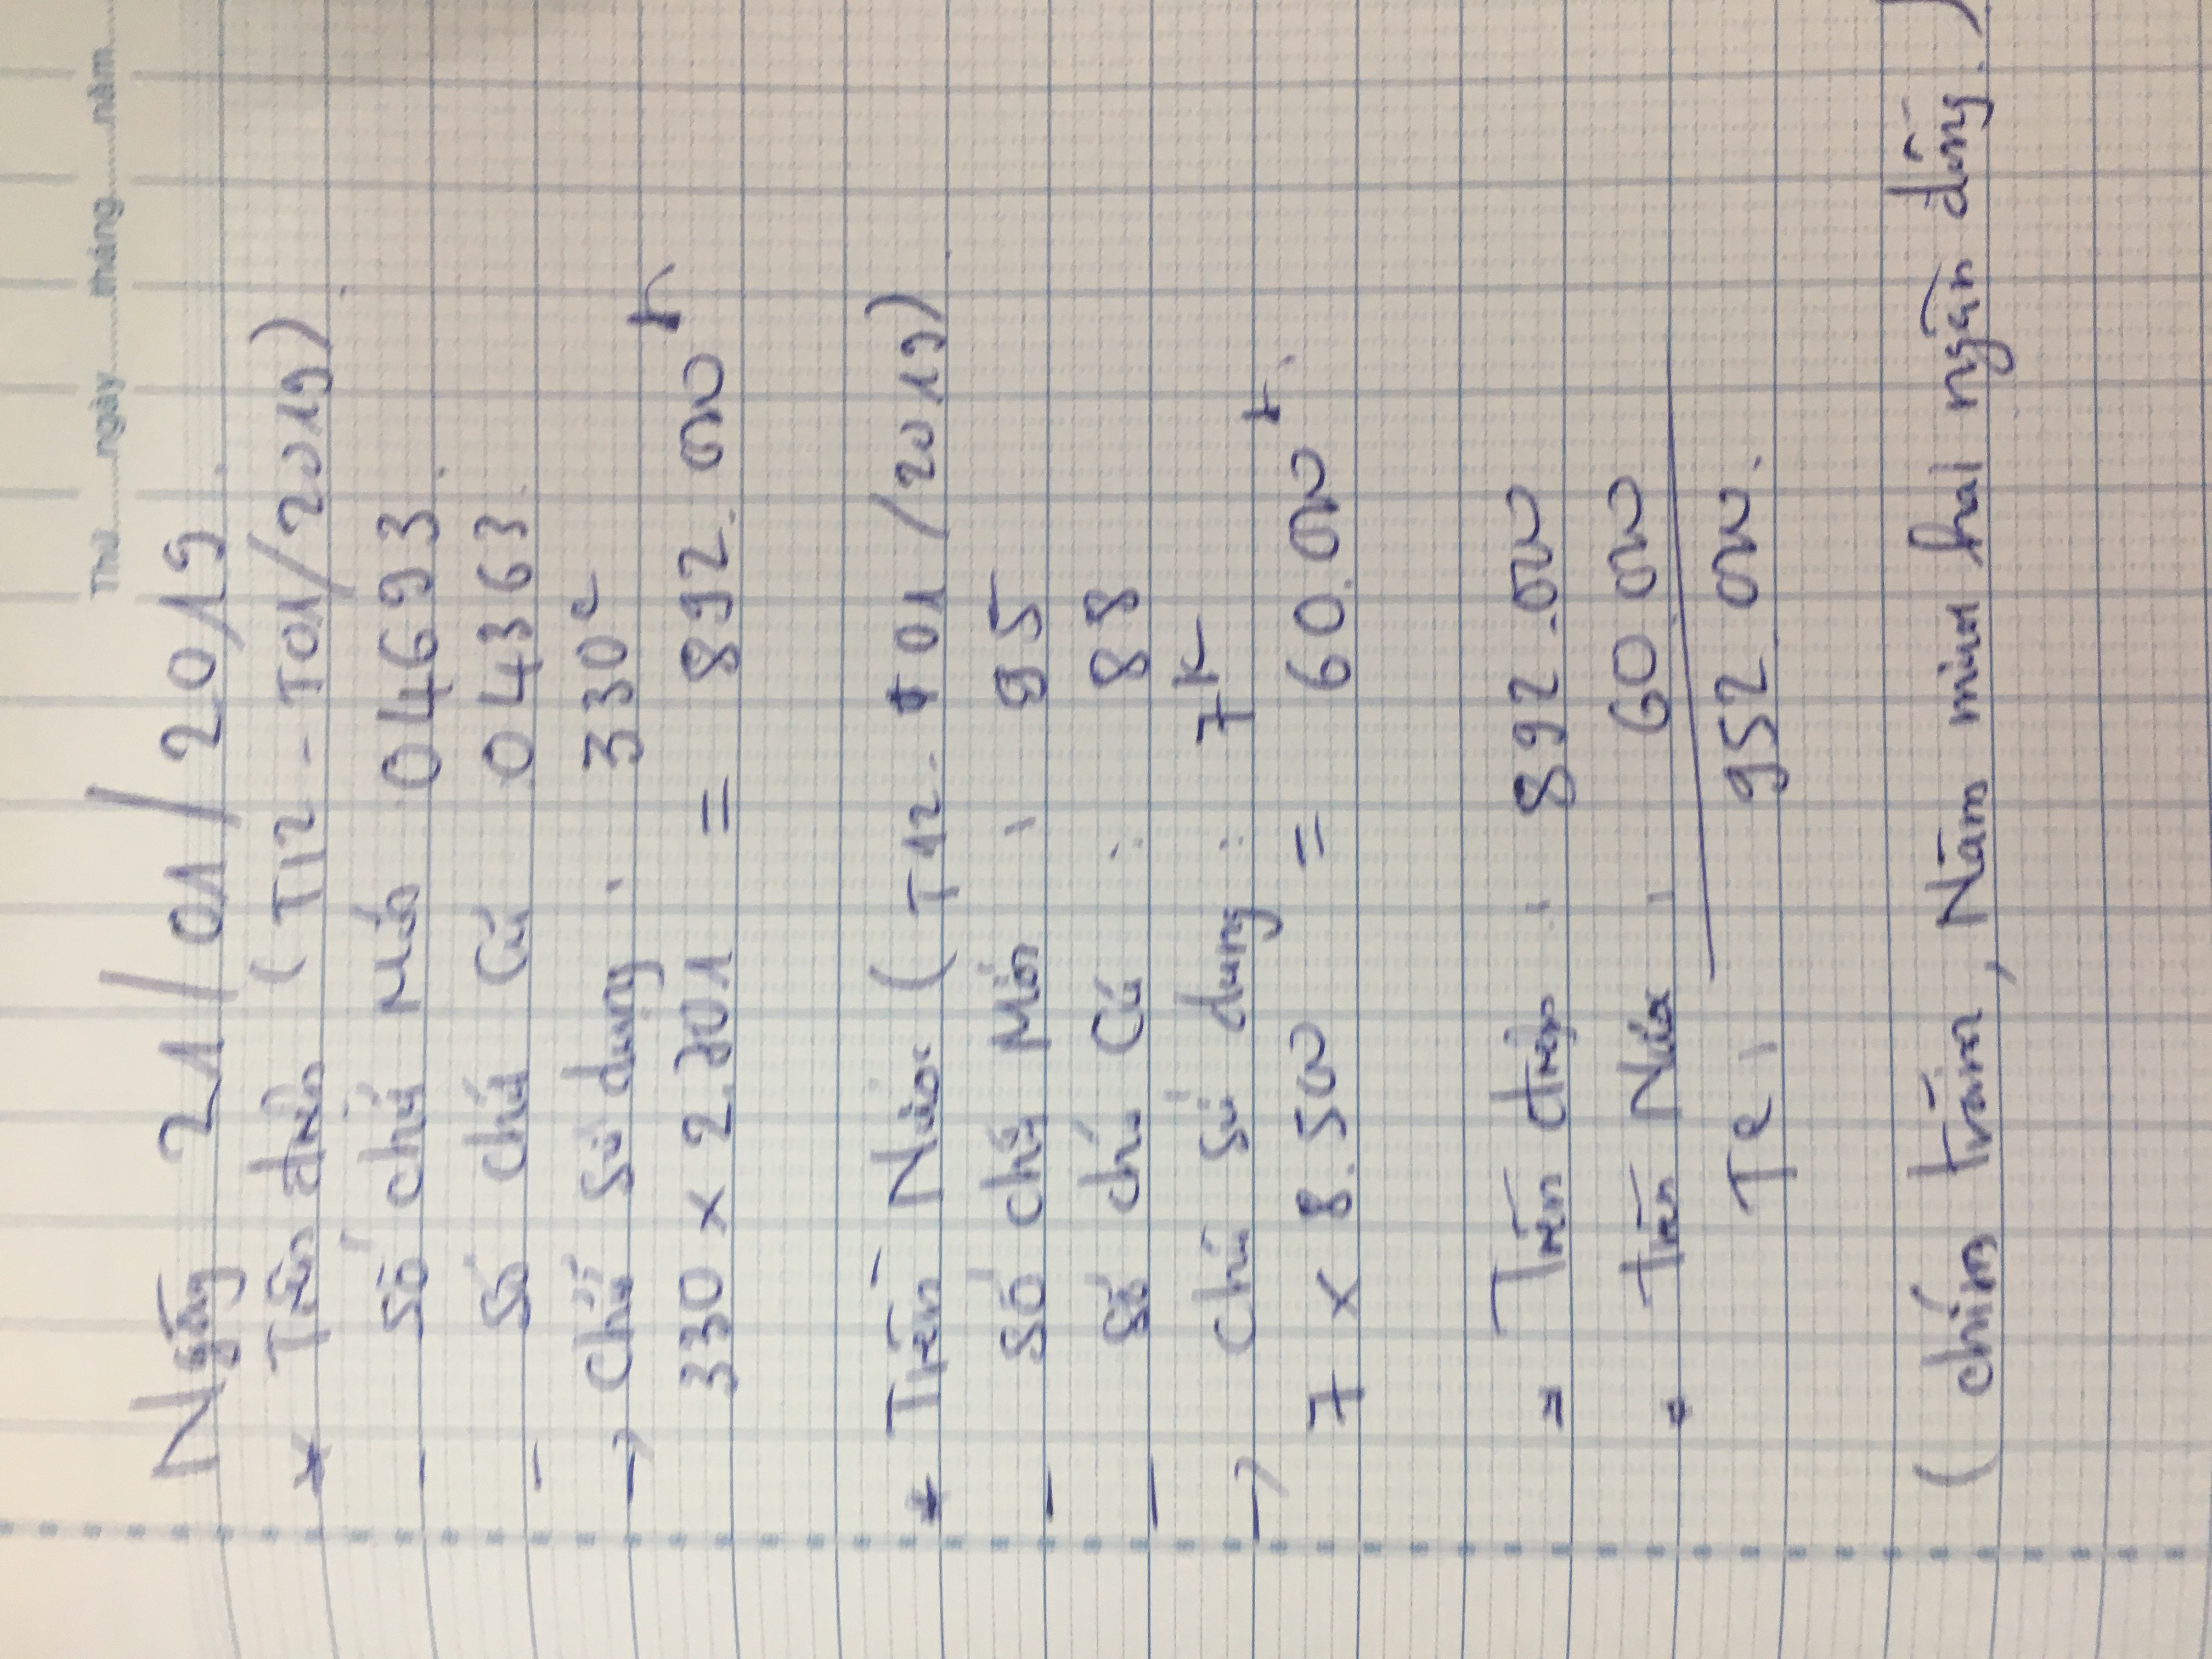 Thứ......ngày......tháng......năm......
Ngày 21/01/2019.
* Tiền điện (T12 - T01/2019).
- Số chữ Mới 04693.
- Số chữ Cũ 04363.
→ Chữ sử dụng : 330c
330 x 2.701 = 892.000đ
* Tiền Nước (T12 - T01/2019).
- Số chữ Mới : 95
- Số chữ Cũ : 88
→ Chữ sử dụng : 7K
7 x 8.500 = 60.000đ.
- Tiền điện : 892.000
- Tiền Nước : 60.000
TC : 952.000.
(chín trăm, Năm mươi hai ngàn đồng.)